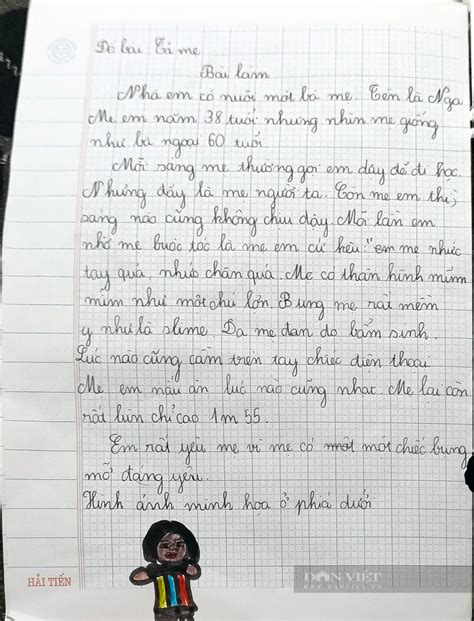 Đề bài: Tả mẹ
Bài làm
Nhà em có nuôi một bà mẹ. Tên là Nga
Mẹ em năm 38 tuổi nhưng nhìn mẹ giống
như bà ngoại 60 tuổi.
Mỗi sáng mẹ thường gọi em dậy để đi học.
Nhưng đấy là mẹ người ta. Còn mẹ em thì
sáng nào cũng không chịu dậy. Mỗi lần em
nhờ mẹ buộc tóc là mẹ em cứ kêu: "em mẹ nhức
tay quá, nhức chân quá. Mẹ có thân hình mũm
mĩm như một chú lợn. Bụng mẹ rất mềm
y như là slime. Da mẹ đen do bẩm sinh.
Lúc nào cũng cầm trên tay chiếc điện thoại.
Mẹ em nấu ăn lúc nào cũng nhạt. Mẹ lại còn
rất lùn chỉ cao 1m 55.
Em rất yêu mẹ vì mẹ có một một chiếc bụng
mỡ đáng yêu.
Hình ảnh minh họa ở phía dưới
HẢI TIẾN
DÂN VIỆT